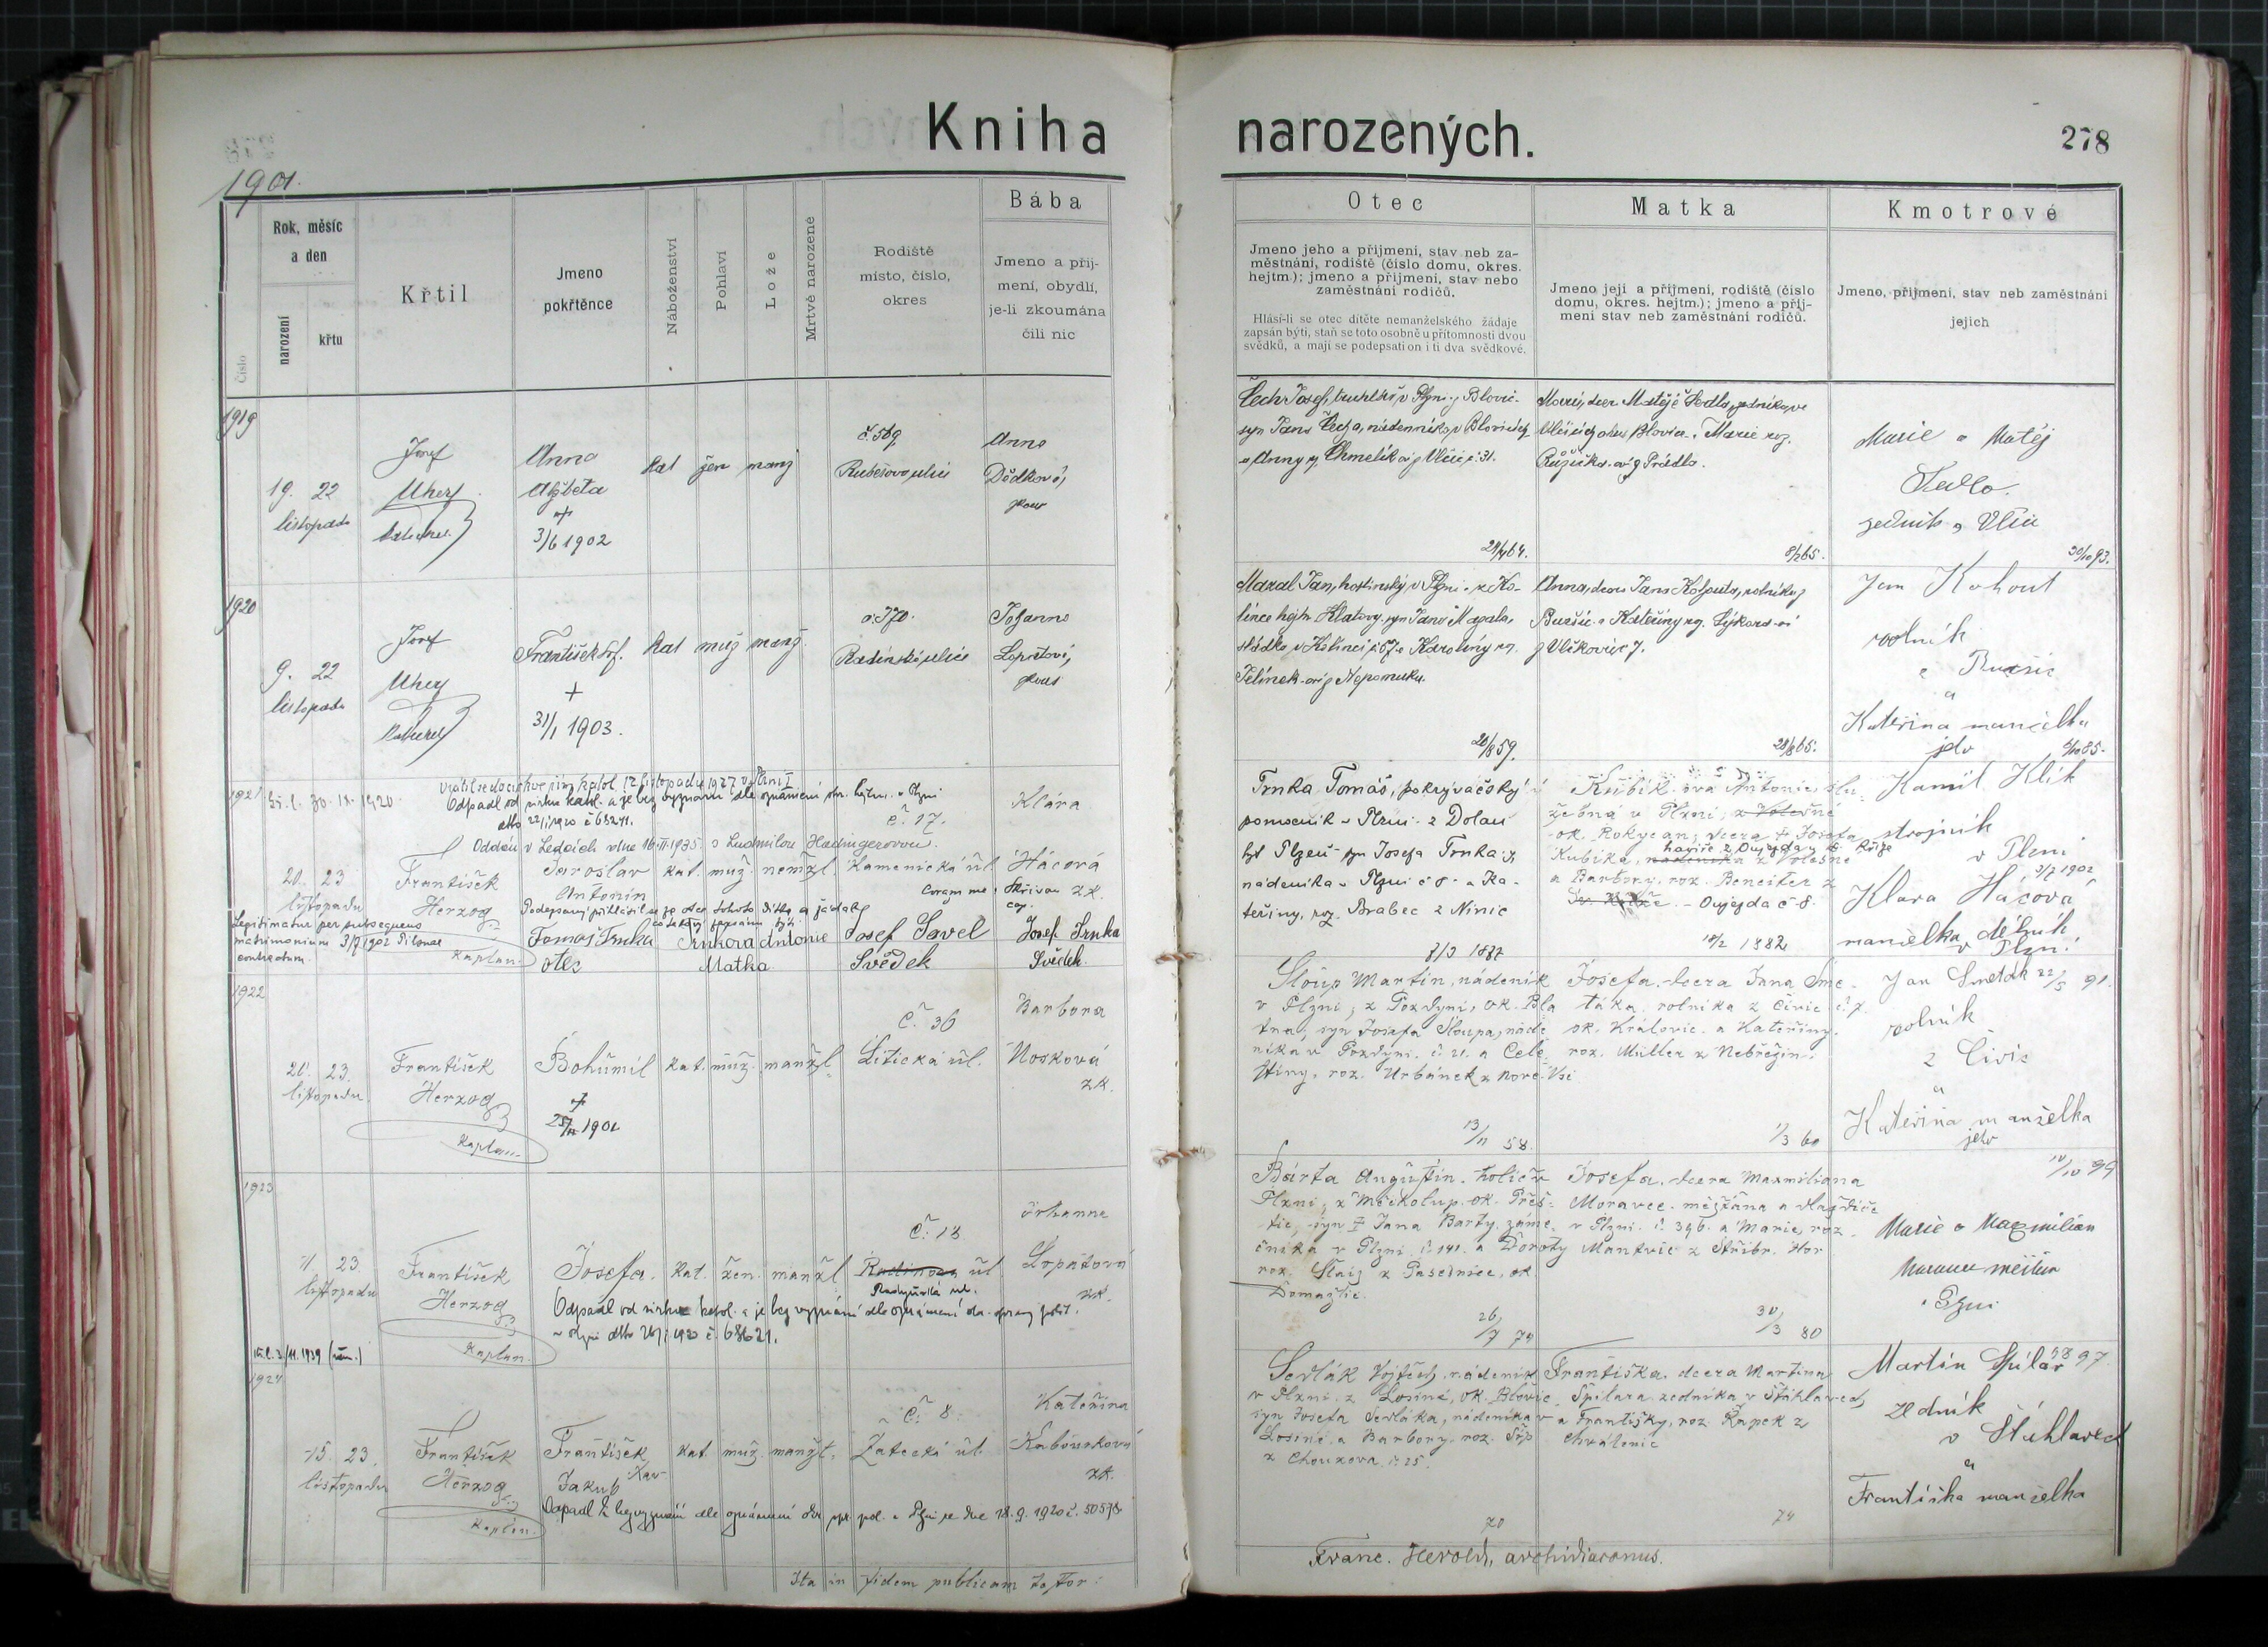 Kniha narozených.
278
1901.
Číslo
Rok, měsíc
a den
narození
křtu
Křtil
Jmeno
pokřtěnce
Náboženství
Pohlaví
Lože
Mrtvě narozené
Rodiště
místo, číslo,
okres
Bába
Jmeno a příj-
mení, obydlí,
je-li zkoumána
čili nic
Otec
Jmeno jeho a přijmení, stav neb za-
městnání, rodiště (číslo domu, okres.
hejtm.); jmeno a přijmení, stav nebo
zaměstnání rodičů.
Hlásí-li se otec dítěte nemanželského žádaje
zapsán býti, staň se toto osobně u přítomnosti dvou
svědků, a mají se podepsati on i ti dva svědkové.
Matka
Jmeno její a přijmení, rodiště (číslo
domu, okres. hejtm.); jmeno a příj-
mení stav neb zaměstnání rodičů.
Kmotrové
Jmeno, přijmení, stav neb zaměstnání
jejich
1919
19. 22
listopadu
Josef
Uherz
Anna
Alžběta
+
3/6 1902
kat žen manž
č. 569
Rubešova ulice
Anna
Dědková,
Čech Josef, truhlář v Plzni z Blovic
syn Jana Čecha, nádenníka v Blovicích
a Anny r. Chmelíkové z Vlčic č. 31.
24/4 64.
Marie, dcera Matěje Sedla, zedníka ve
Vlčicích okres Blovice a Marie roz.
Růžička z Prádla.
8/2 65.
Marie a Matěj
Sedlo
zedník z Vlčic
30/10 93.
1920
9. 22
listopadu
Josef
Uherz
František Jos.
+
31/1 1903.
kat muž manž.
č. 370.
Radinská ulice
Johanna
Lopatová,
Mazal Jan, hostinský v Plzni z Ko-
lince hejtm. Klatovy, syn Jana Mazala,
sládka v Kolinci č. 57 a Karolíny roz.
Jelínek z Nepomuku.
20/8 59.
Anna, dcera Jana Kohouta, rolníka z
Buršic a Kateřiny roz. Sýkora
z Vlčkovic 7.
28/8 65.
Jan Kohout
rolník
z Buršic
a
Kateřina manželka
jeho
85.
1921
30.11.1920
Vrátil se do církve řím. katol. 12 listopadu 1927 v Plzni I
Odpadl od církve katol. a je bez vyznání dle oznámení okr. hejtm. v Plzni
dto 22/1 1920 č 68241.
Oddán v Ledcích dne 16.II.1935 s Ludmilou Hadingerovou.
20. 23
listopadu
František
Herzog
Kaplan
Jaroslav
Antonín
kat. muž. nemžl.
č. 17.
Kamenická úl.
Klára
Hácová
zk.
Coram me Skřivan
cap.
Podepsaný přihlásil se za otce tohoto dítka a žádal
co takový zapsán býti
Legitimatur per subsequens
matrimonium 3/7 1902 Pilsnae
contractum.
Tomáš Trnka
otec
Trnková Antonie
Matka
Josef Savel
Svědek
Josef Trnka
Svědek.
Trnka Tomáš, pokrývačský
pomocník v Plzni z Dolan
hjt Plzeň syn Josefa Trnka,
nádenika v Plzni č 8 a Ka-
teřiny, roz. Brabec z Ninic
8/3 1887
Kubíkova Antonie, slu-
žebná v Plzni, z Volešné
ok. Rokycan; dcera + Josefa
Kubíka, havíře z Oujezda u sv. Kříže
nádenika z Volešné
a Barbory, roz. Beneiter z
Sv. Kříže - Oujezda č 8.
10/2 1882
Kamil Klik
strojník
v Plzni
3/7 1902
Klara Hácova
manželka dělník
v Plzni
1922
20. 23.
listopadu
František
Herzog
Kaplan
Bohumil
+
1901
kat. muž. manžl.
č. 36
Litická úl.
Barbora
Nosková
zk.
Sloup Martin, nádeník
v Plzni, z Pozdyní, ok. Bla
tná, syn Josefa Sloupa, náde
níka v Pozdyni č. 21. a Cele-
stiny, roz. Urbánek z Nové Vsi
13/11 58.
Josefa, dcera Jana Sme-
táka, rolníka z Čivic č. 7.
ok. Kralovic a Kateřiny
roz. Müller z Nebřežin.
1/3 60
Jan Smeták 22/5 91.
rolník
z Čivic
a
Kateřina manželka
jeho
1923
11. 23.
listopadu
František
Herzog
Kaplan.
Josefa.
kat. žen. manžl
č. 13.
Radinova úl.
Radyňská ul.
Johanna
Lopatová
zk.
Odpadl od církve katol. a je bez vyznání dle oznámení okr. správy polit.
v Plzni dto 26/1 1920 č. 68621.
Bárta Augustin, holič v
Plzni, z Měcholup, ok. Přeš-
tic, syn + Jana Barty, záme-
čníka v Plzni č. 141. a Doroty
roz. Staiz z Pasečnice, ok.
Domažlic.
26/7 74
Josefa, dcera Maxmiliana
Moravce, měšťana a
v Plzni č. 396. a Marie, roz.
Mantvic z Stříbr. Hor
30/3 80
10/10 99
Marie a Maxmilian
Moravec měšťan
v Plzni
1924
15. 23.
listopadu
František
Herzog
Kaplan.
František
Jakub
kat. muž. manžl.
č. 8.
Žatecká úl.
Kateřina
Kaboursková
zk.
Odpadl k bezvyznání dle oznámení okr. spr. pol. v Plzni ze dne 18.9.1920 č. 50578
Sedlák Vojtěch, nádeník
v Plzni z Losiné, ok. Blovic,
syn Josefa Sedláka, nádeníka v
Losiné a Barbory roz. Šíp
z Chouzova č. 25.
70
Františka, dcera Martina
Špilara, zedníka v Štáhlavech
a Františky, roz Řapek z
Chválenic
74
Martin Špilar 97.
zedník
v Štáhlavech
a
Františka manželka
Ita in fidem publicam testor:
Franc. Herold, archidiaconus.